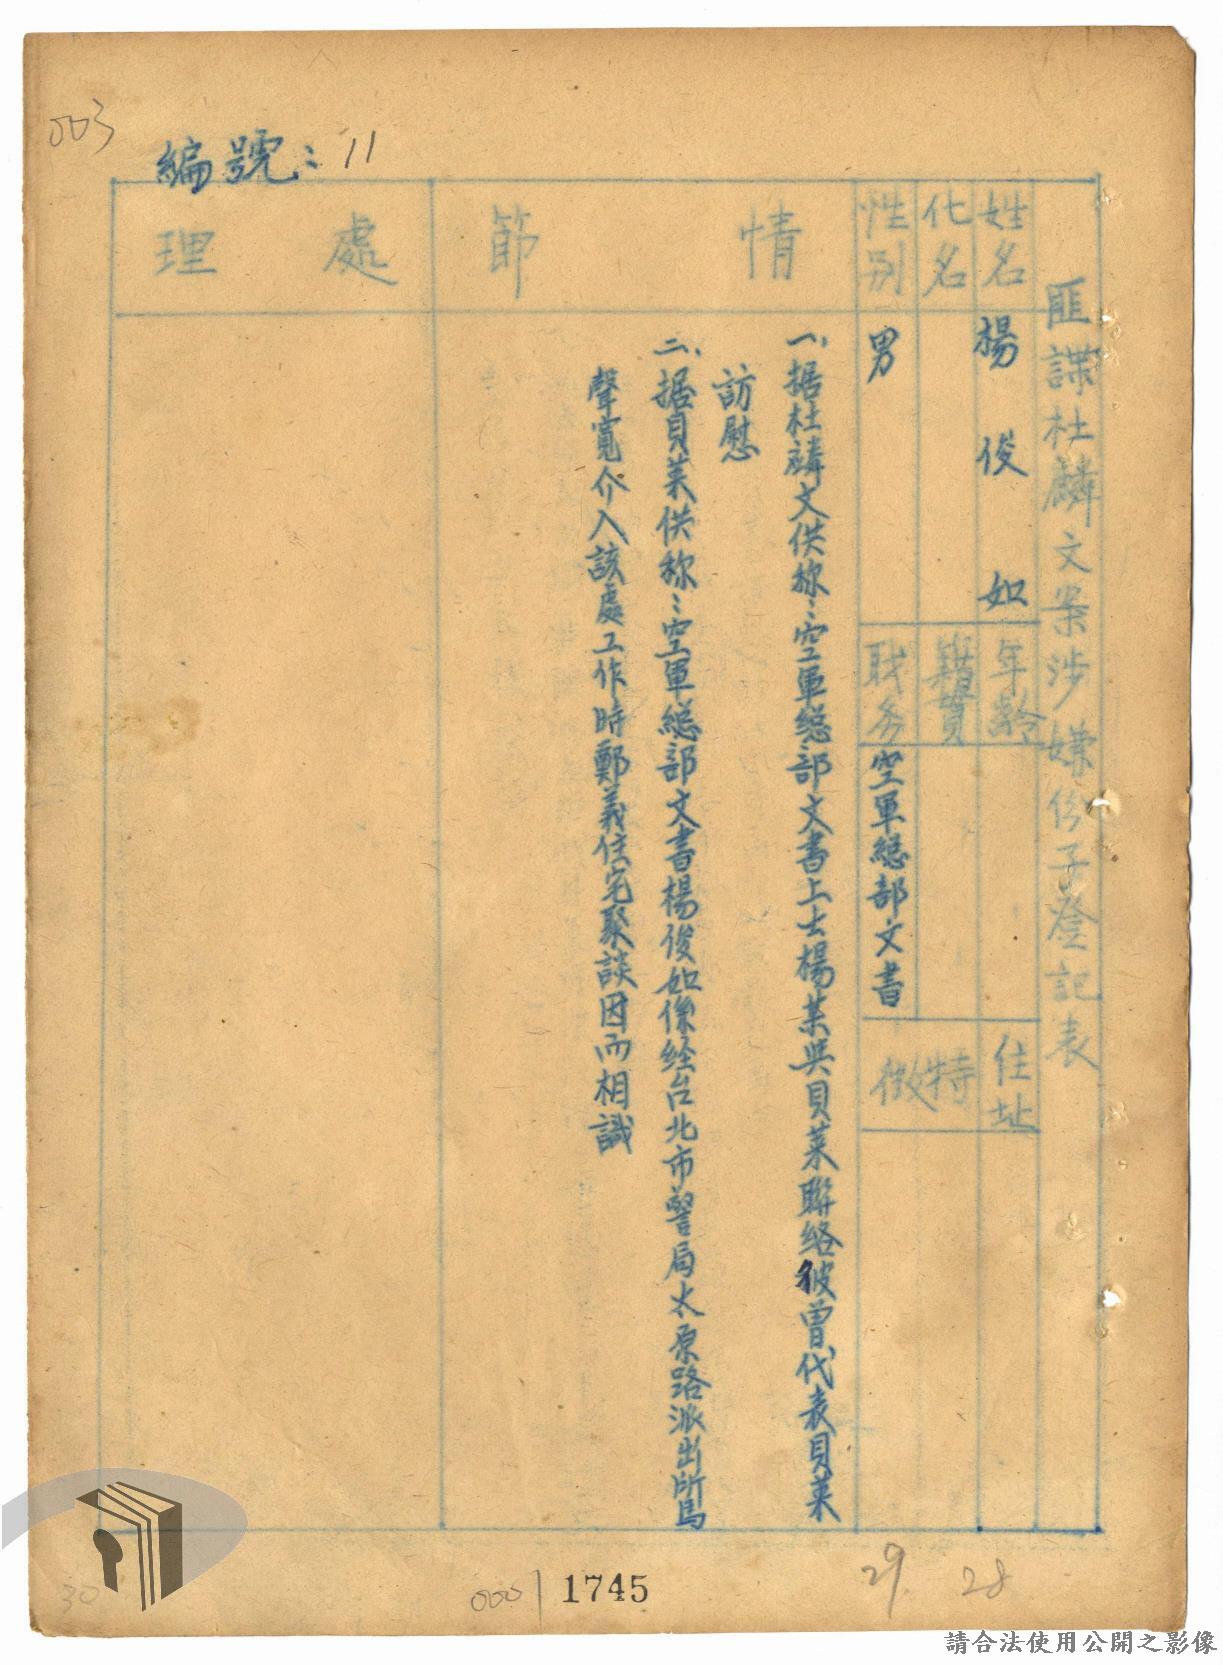 003
編號：11
匪諜杜麟文案涉嫌份子登記表
姓名
楊俊如
年齡
住址
化名
籍貫
特徵
性別
男
職务
空軍総部文書
情節
一、据杜麟文供称：空軍総部文書上士楊某與貝萊聯络彼曾代表貝萊
訪慰
二、据貝萊供称：空軍総部文書楊俊如係经台北市警局太原路派出所馬
聲寬介入該處工作時鄭義住宅聚談因而相識
處理
30
000
1745
29
28
請合法使用公開之影像